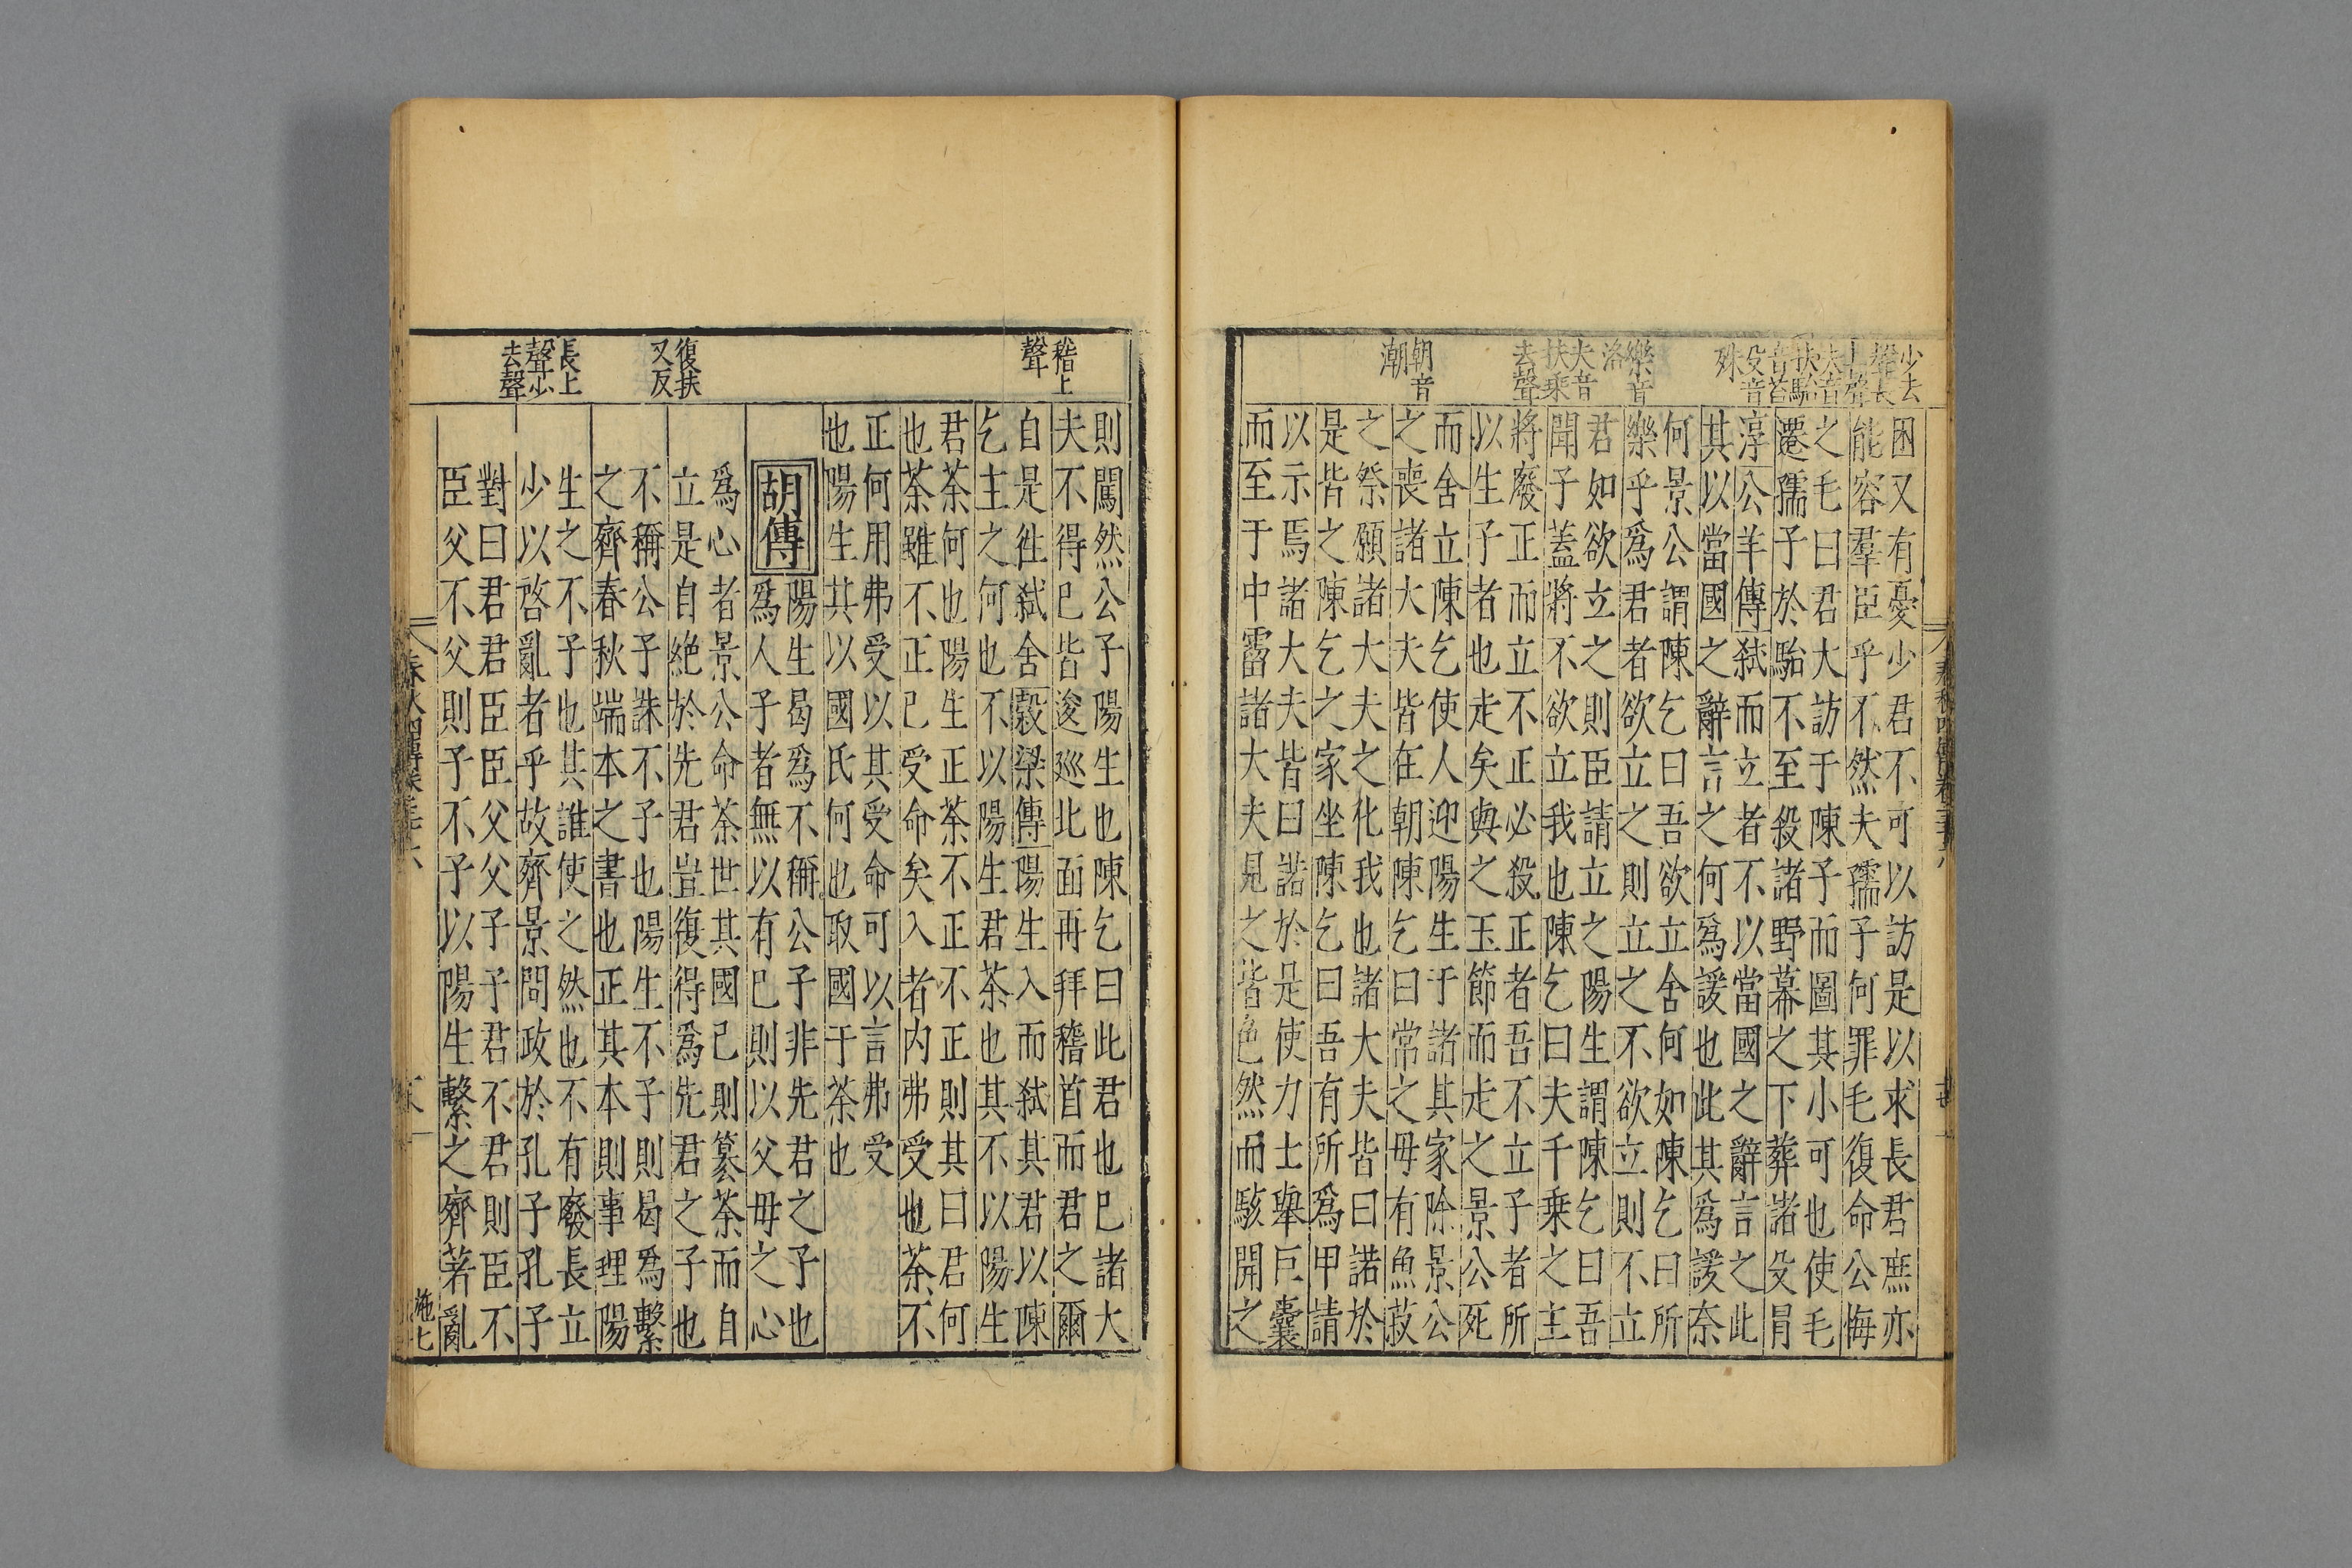 少去
聲長
上聲
夫音
扶駘
音苔
殳音
殊
樂音
洛
夫音
扶乘
去聲
朝音
潮
困又有憂少君不可以訪是以求長君庶亦
能容羣臣乎不然夫孺子何罪毛復命公悔
之毛曰君大訪于陳子而圖其小可也使毛
遷孺子於駘不至殺諸野幕之下葬諸殳冒
淳公羊傳弑而立者不以當國之辭言之此
其以當國之辭言之何爲諼也此其爲諼奈
何景公謂陳乞曰吾欲立舍何如陳乞曰所
樂乎爲君者欲立之則立之不欲立則不立
君如欲立之則臣請立之陽生謂陳乞曰吾
聞子蓋將不欲立我也陳乞曰夫千乘之主
將廢正而立不正必殺正者吾不立子者所
以生子者也走矣與之玉節而走之景公死
而舍立陳乞使人迎陽生于諸其家除景公
之喪諸大夫皆在朝陳乞曰常之毋有魚菽
之祭願諸大夫之化我也諸大夫皆曰諾於
是皆之陳乞之家坐陳乞曰吾有所爲甲請
以示焉諸大夫皆曰諾於是使力士舉巨囊
而至于中霤諸大夫見之皆色然而駭開之
稽上
聲
復扶
又反
長上
聲少
去聲
則闖然公子陽生也陳乞曰此君也已諸大
夫不得已皆逡廵北面再拜稽首而君之爾
自是徃弑舍穀梁傳陽生入而弑其君以陳
乞主之何也不以陽生君荼也其不以陽生
君荼何也陽生正荼不正不正則其曰君何
也荼雖不正已受命矣入者内弗受也荼不
正何用弗受以其受命可以言弗受
也陽生其以國氏何也取國于荼也
胡傳
陽生曷爲不稱公子非先君之子也
爲人子者無以有已則以父母之心
爲心者景公命荼世其國已則篡荼而自
立是自絶於先君豈復得爲先君之子也
不稱公子誅不子也陽生不子則曷爲繫
之齊春秋端本之書也正其本則事理陽
生之不子也其誰使之然也不有廢長立
少以啓亂者乎故齊景問政於孔子孔子
對曰君君臣臣父父子子君不君則臣不
臣父不父則子不子以陽生繫之齊著亂
施七